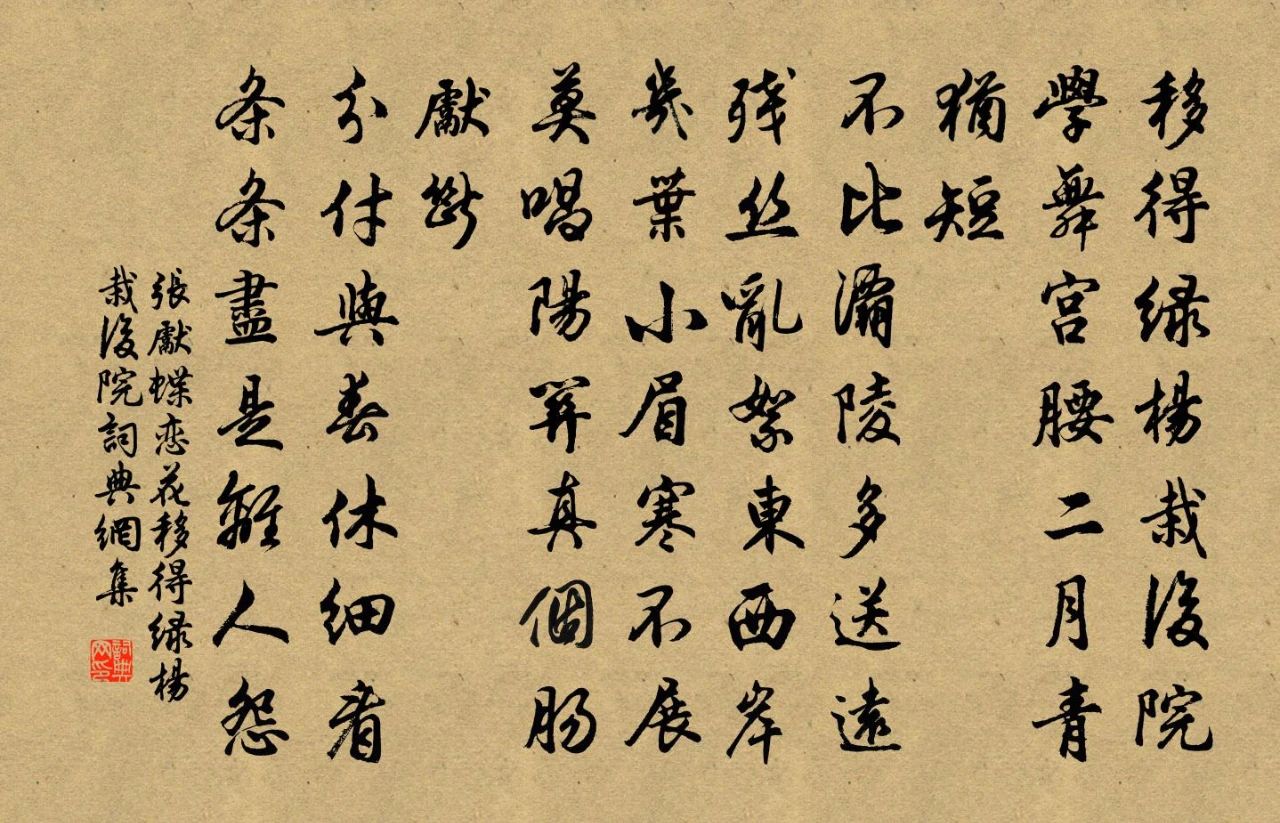 移得绿楊栽後院
學舞宫腰二月青
猶短
不比灞陵多送遠
残丝亂絮東西岸
幾葉小眉寒不展
莫唱陽関真個腸
獻斷
分付與春休細看
条条盡是離人怨
張獻蝶恋花移得绿楊
栽後院詞典網集
詞典网印